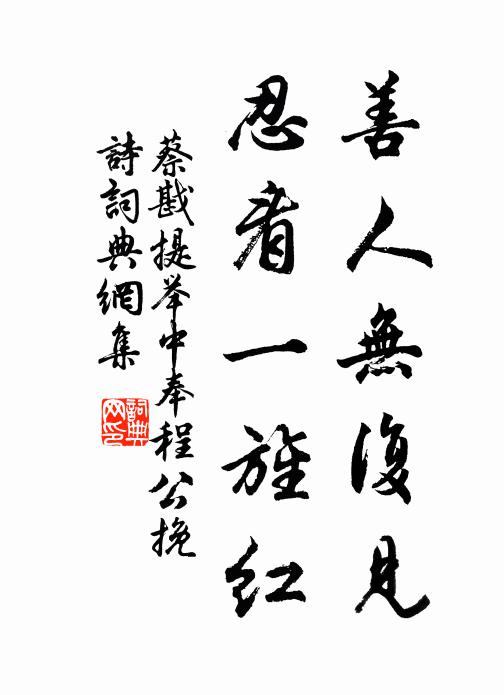 善人無復見
忍看一旌紅
蔡戡提举中奉程公挽
詩詞典網集
詞典网印